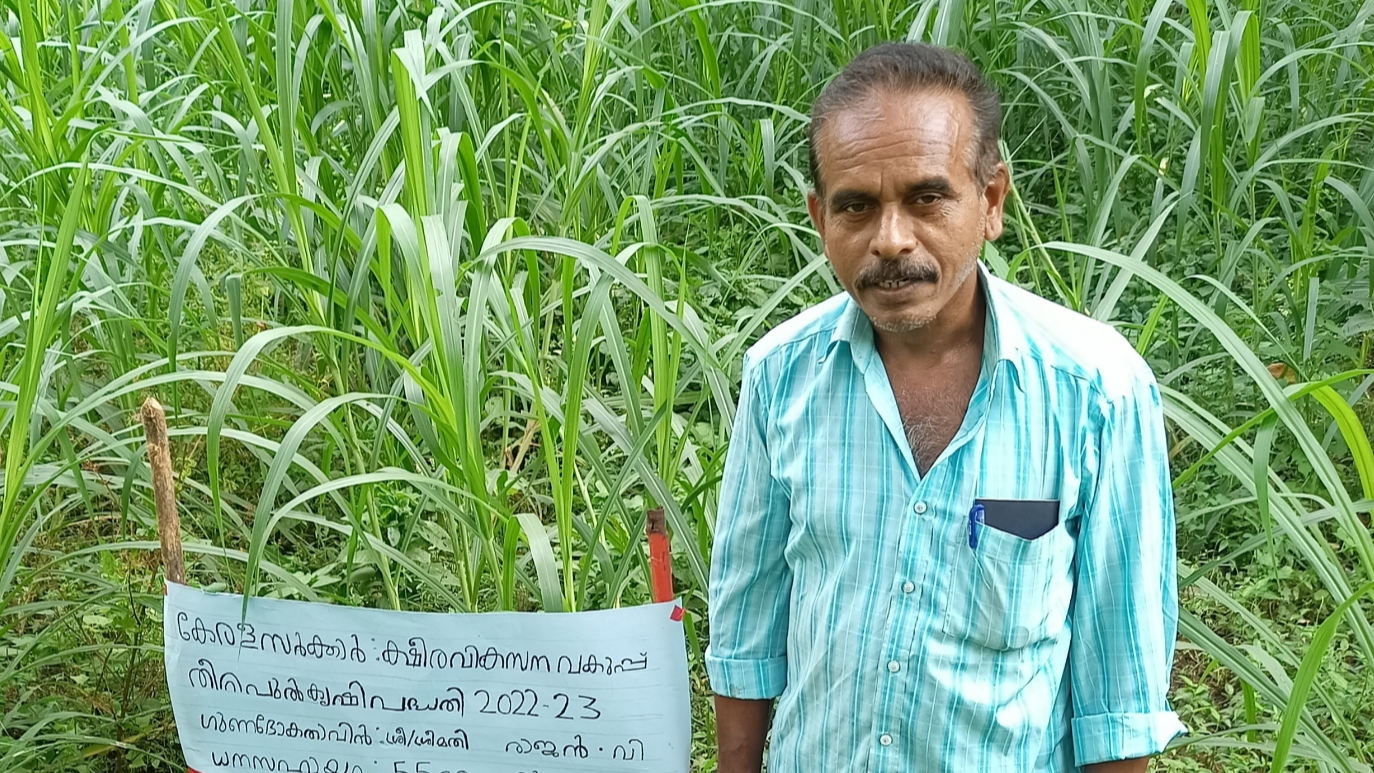 കേരളസർക്കാർ : ക്ഷീരവികസന വകുപ്പ്
തീറ്റപുൽകൃഷിപദ്ധതി 2022-23
ഗുണഭോക്താവിൻ : ശ്രീ/ശ്രീമതി രാജൻ . വി
ധനസഹായം :